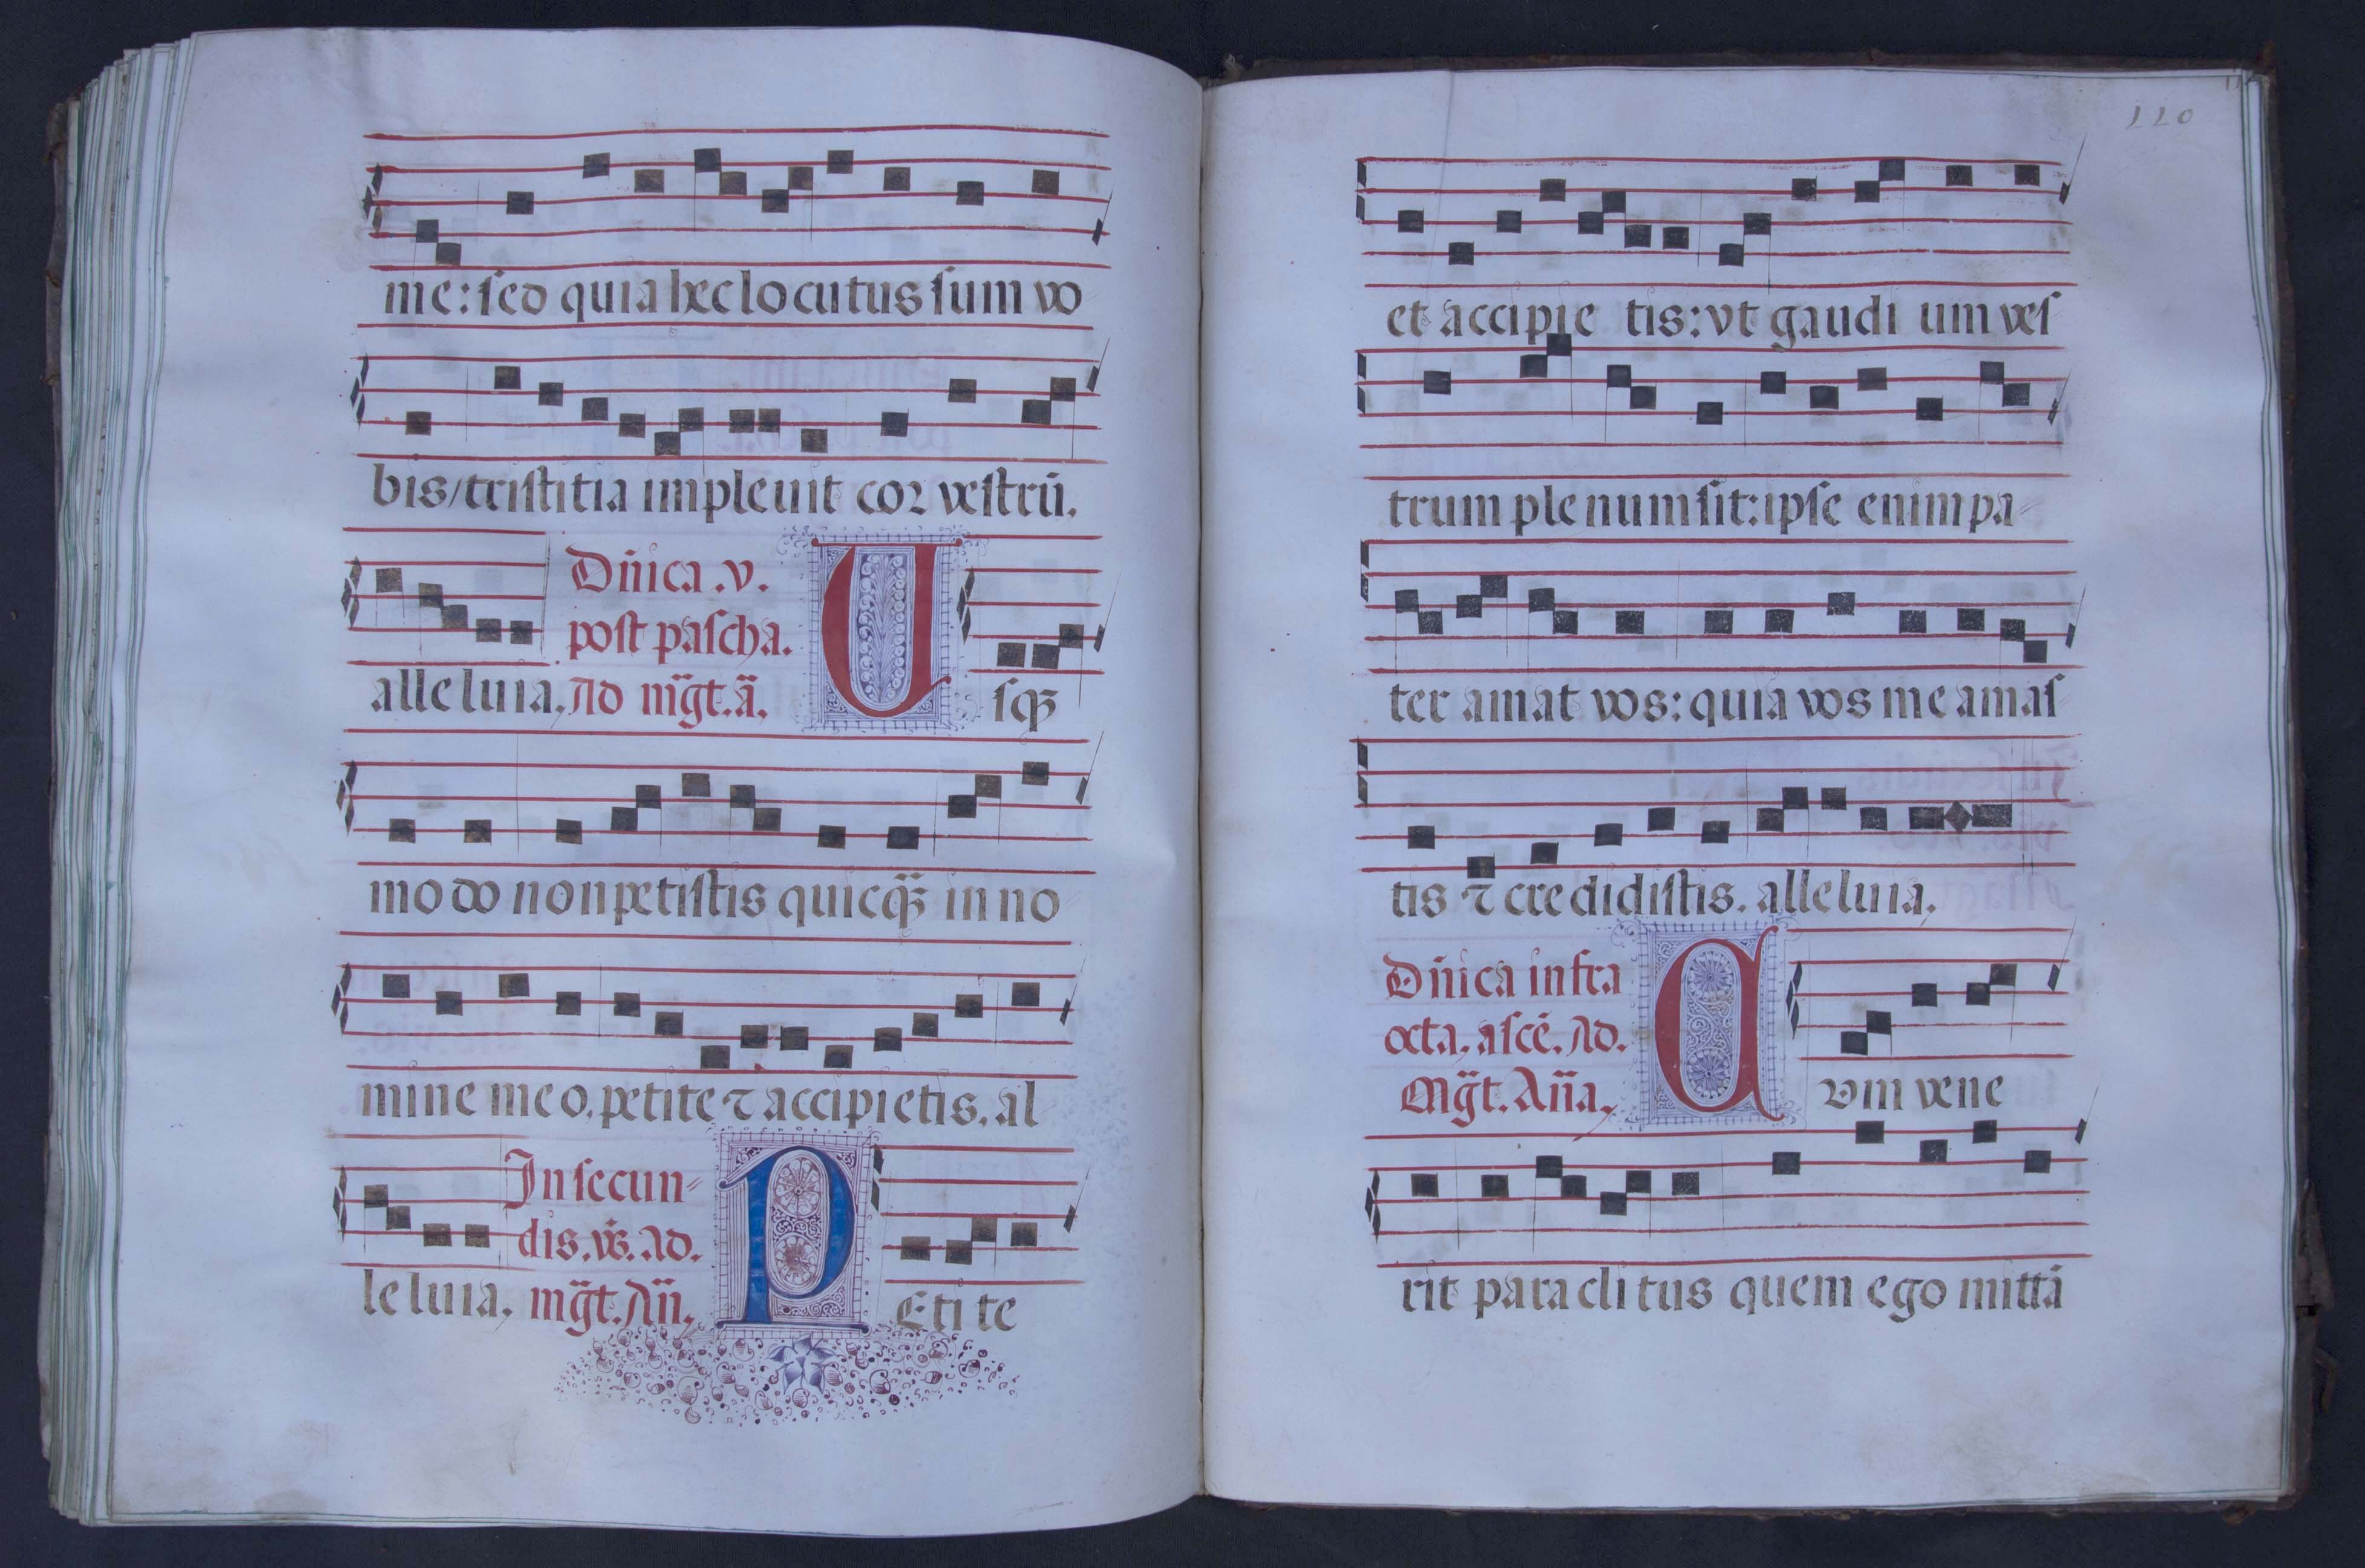 me: sed quia hec locutus sum vo
bis / tristitia impleuit cor vestrū.
alleluia. Dn̄ica .v. post pascha. Ad mg̃t. ã. Vsqꝫ
modo non petistis quicq̃ꝫ in no
mine meo. petite ⁊ accipietis. al
leluia. In secun-dis. vs̃. Ad. mg̃t. An̄. PEtite
110
et accipie tis: vt gaudi um ves
trum plenum sit: ipse enim pa-
ter amat vos: quia vos me amas
tis ⁊ credidistis. alleluia.
Dn̄ica infra octa. ascē. Ad. Mg̃t. An̄a. Cvm vene
rit paraclitus quem ego mittā